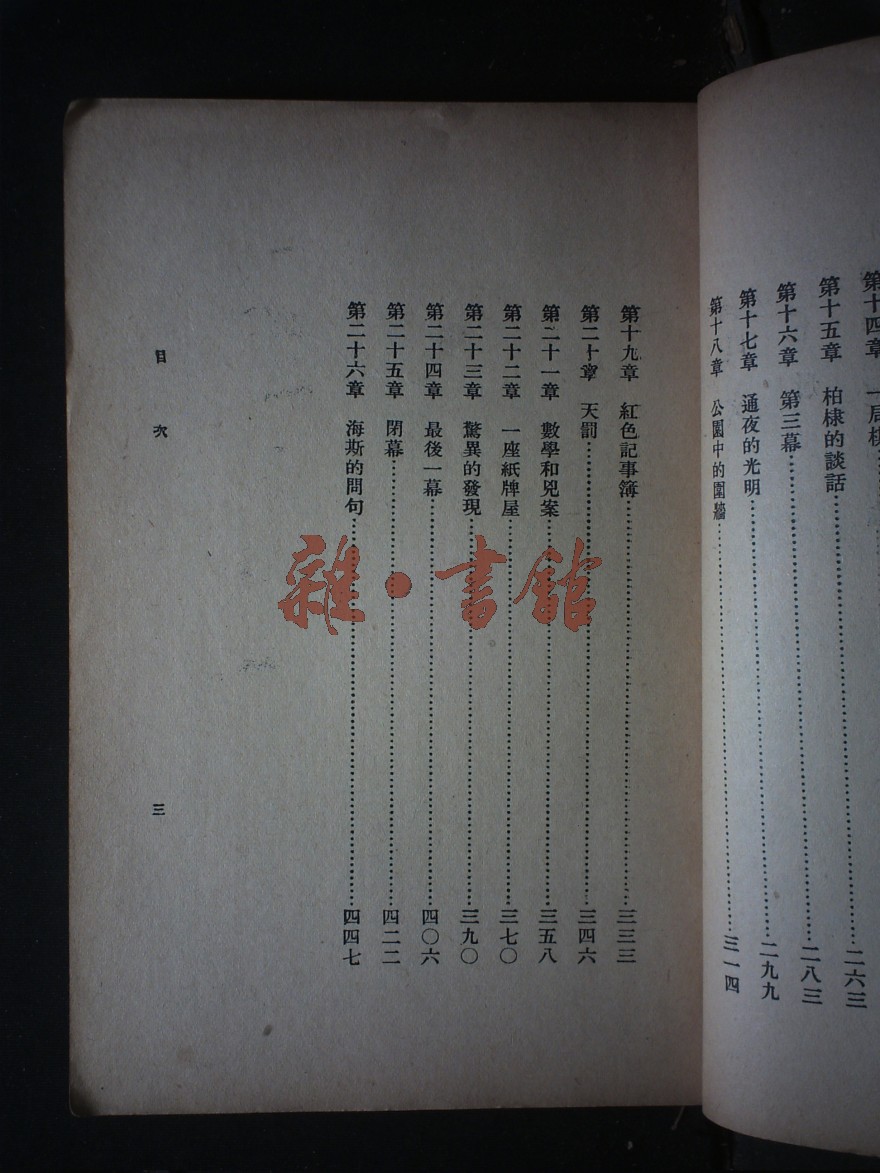 第十四章 一局棋
第十五章 柏棣的談話……二六三
第十六章 第三幕……二八三
第十七章 通夜的光明……二九九
第十八章 公園中的圍牆……三一四
第十九章 紅色記事簿……三三三
第二十章 天罰……三四六
第二十一章 數學和兇案……三五八
第二十二章 一座紙牌屋……三七〇
第二十三章 驚異的發現……三九〇
第二十四章 最後一幕……四〇六
第二十五章 閉幕……四二二
第二十六章 海斯的問句……四四七
目次 三
雜·書館